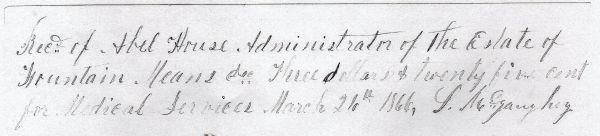 Recd. of Abel House Administrator of the Estate of
Fountain Means dec Three dollars & twenty five cent
for Medical Services March 26th 1866, S. McGaughey